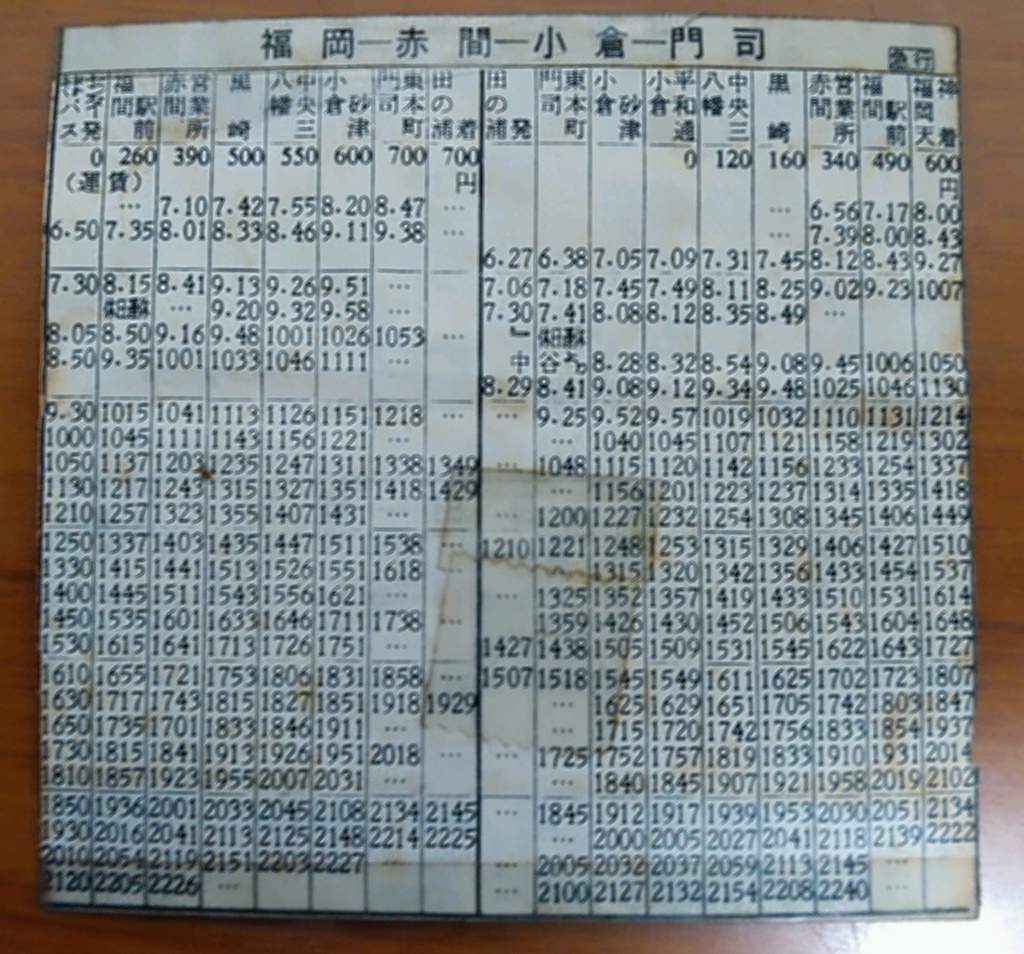 福岡―赤間―小倉―門司
急行
センターバス発 福間駅前 赤間営業所 黒崎 八幡中央三 小倉砂津 門司東本町 田の浦着 田の浦発 門司東本町 小倉砂津 小倉平和通 八幡中央三 黒崎 赤間営業所 福間駅前 福岡天神着
0 260 390 500 550 600 700 700 0 120 160 340 490 600
(運賃) 円 円
… 7.10 7.42 7.55 8.20 8.47 … … 6.56 7.17 8.00
6.50 7.35 8.01 8.33 8.46 9.11 9.38 … … 7.39 8.00 8.43
6.27 6.38 7.05 7.09 7.31 7.45 8.12 8.43 9.27
7.30 8.15 8.41 9.13 9.26 9.51 … 7.06 7.18 7.45 7.49 8.11 8.25 9.02 9.23 1007
休日運休 … 9.20 9.32 9.58 … 7.30 7.41 8.08 8.12 8.35 8.49 …
8.05 8.50 9.16 9.48 1001 1026 1053 … 休日運休
8.50 9.35 1001 1033 1046 1111 … 『中谷から 8.28 8.32 8.54 9.08 9.45 1006 1050
8.29 8.41 9.08 9.12 9.34 9.48 1025 1046 1130
9.30 1015 1041 1113 1126 1151 1218 … … 9.25 9.52 9.57 1019 1032 1110 1131 1214
1000 1045 1111 1143 1156 1221 … … 1040 1045 1107 1121 1158 1219 1302
1050 1137 1203 1235 1247 1311 1338 1349 … 1048 1115 1120 1142 1156 1233 1254 1337
1130 1217 1243 1315 1327 1351 1418 1429 … 1156 1201 1223 1237 1314 1335 1418
1210 1257 1323 1355 1407 1431 … … 1200 1227 1232 1254 1308 1345 1406 1449
1250 1337 1403 1435 1447 1511 1538 … 1210 1221 1248 1253 1315 1329 1406 1427 1510
1330 1415 1441 1513 1526 1551 1618 … … 1315 1320 1342 1356 1433 1454 1537
1400 1445 1511 1543 1556 1621 … … 1325 1352 1357 1419 1433 1510 1531 1614
1450 1535 1601 1633 1646 1711 1738 … 1359 1426 1430 1452 1506 1543 1604 1648
1530 1615 1641 1713 1726 1751 … … 1427 1438 1505 1509 1531 1545 1622 1643 1727
1610 1655 1721 1753 1806 1831 1858 … 1507 1518 1545 1549 1611 1625 1702 1723 1807
1630 1717 1743 1815 1827 1851 1918 1929 … 1625 1629 1651 1705 1742 1803 1847
1650 1735 1701 1833 1846 1911 … … 1715 1720 1742 1756 1833 1854 1937
1730 1815 1841 1913 1926 1951 2018 … … 1725 1752 1757 1819 1833 1910 1931 2014
1810 1857 1923 1955 2007 2031 … … 1840 1845 1907 1921 1958 2019 2102
1850 1936 2001 2033 2045 2108 2134 2145 … 1845 1912 1917 1939 1953 2030 2051 2134
1930 2016 2041 2113 2125 2148 2214 2225 … 2000 2005 2027 2041 2118 2139 2222
2010 2054 2119 2151 2203 2227 … … 2005 2032 2037 2059 2113 2145 …
2120 2205 2226 … … 2100 2127 2132 2154 2208 2240 …